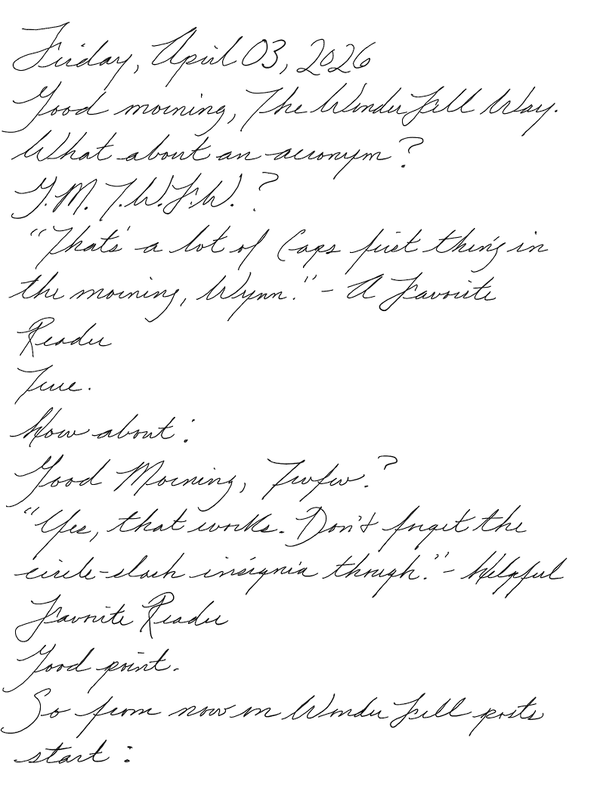 Friday, April 03, 2026
Good morning, The WonderFull Way.
What about an acronym?
G.M. T.W.F.W.?
"That's a lot of Caps first thing in
the morning, Wynn." - A Favorite
Reader
True.
How about:
Good Morning, Twfw.?
"Yes, that works. Don't forget the
circle-slash insignia though." - Helpful
Favorite Reader
Good point.
So from now on WonderFull posts
start: